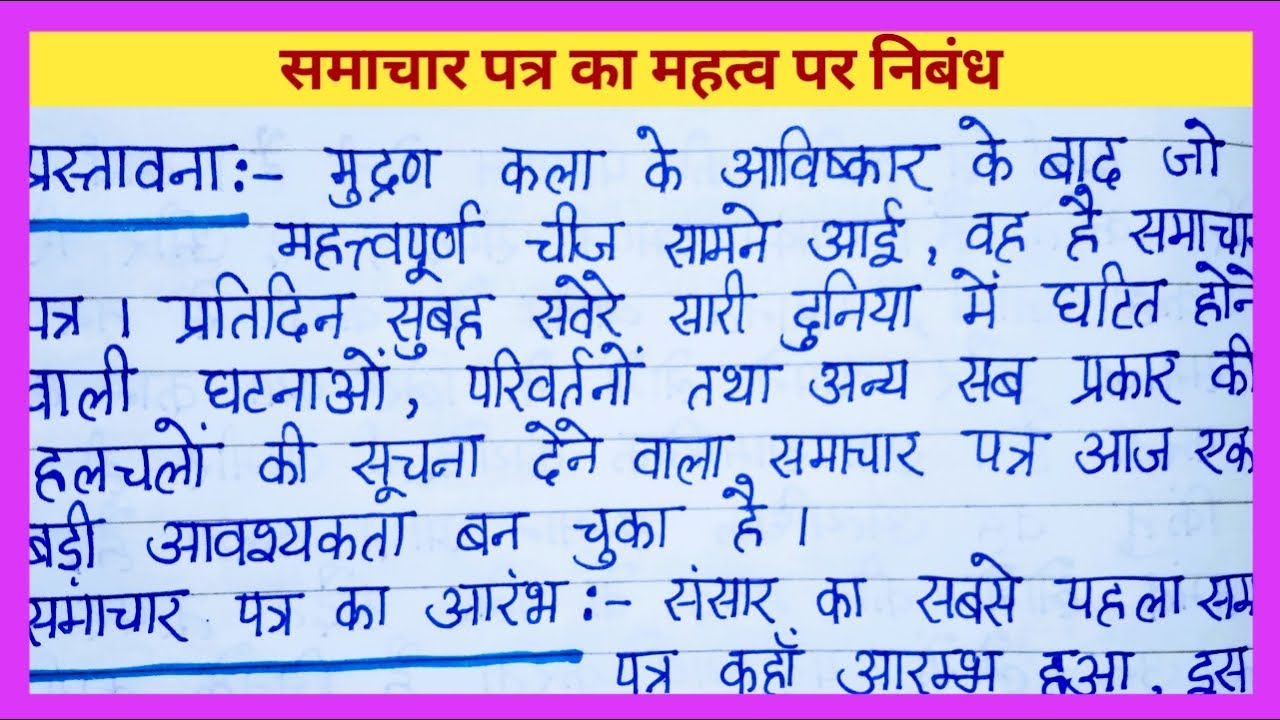 समाचार पत्र का महत्व पर निबंध
प्रस्तावना:- मुद्रण कला के आविष्कार के बाद जो
महत्त्वपूर्ण चीज सामने आई, वह है समाचार
पत्र । प्रतिदिन सुबह सवेरे सारी दुनिया में घटित होने
वाली घटनाओं, परिवर्तनों तथा अन्य सब प्रकार की
हलचलों की सूचना देने वाला समाचार पत्र आज एक
बड़ी आवश्यकता बन चुका है ।
समाचार पत्र का आरंभ :- संसार का सबसे पहला सम
पत्र कहाँ आरम्भ हुआ, इस